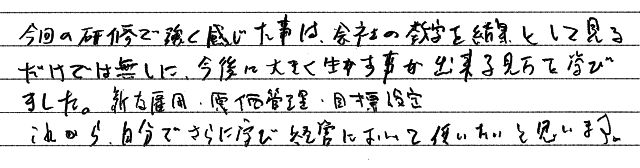 今回の研修で強く感じた事は、会社の数字を結果として見る
だけでは無しに、今後に大きく生かす事が出来る見方を学び
ました。新方雇用・原価管理・目標設定
これから、自分でさらに学び経営において使いたいと思います。